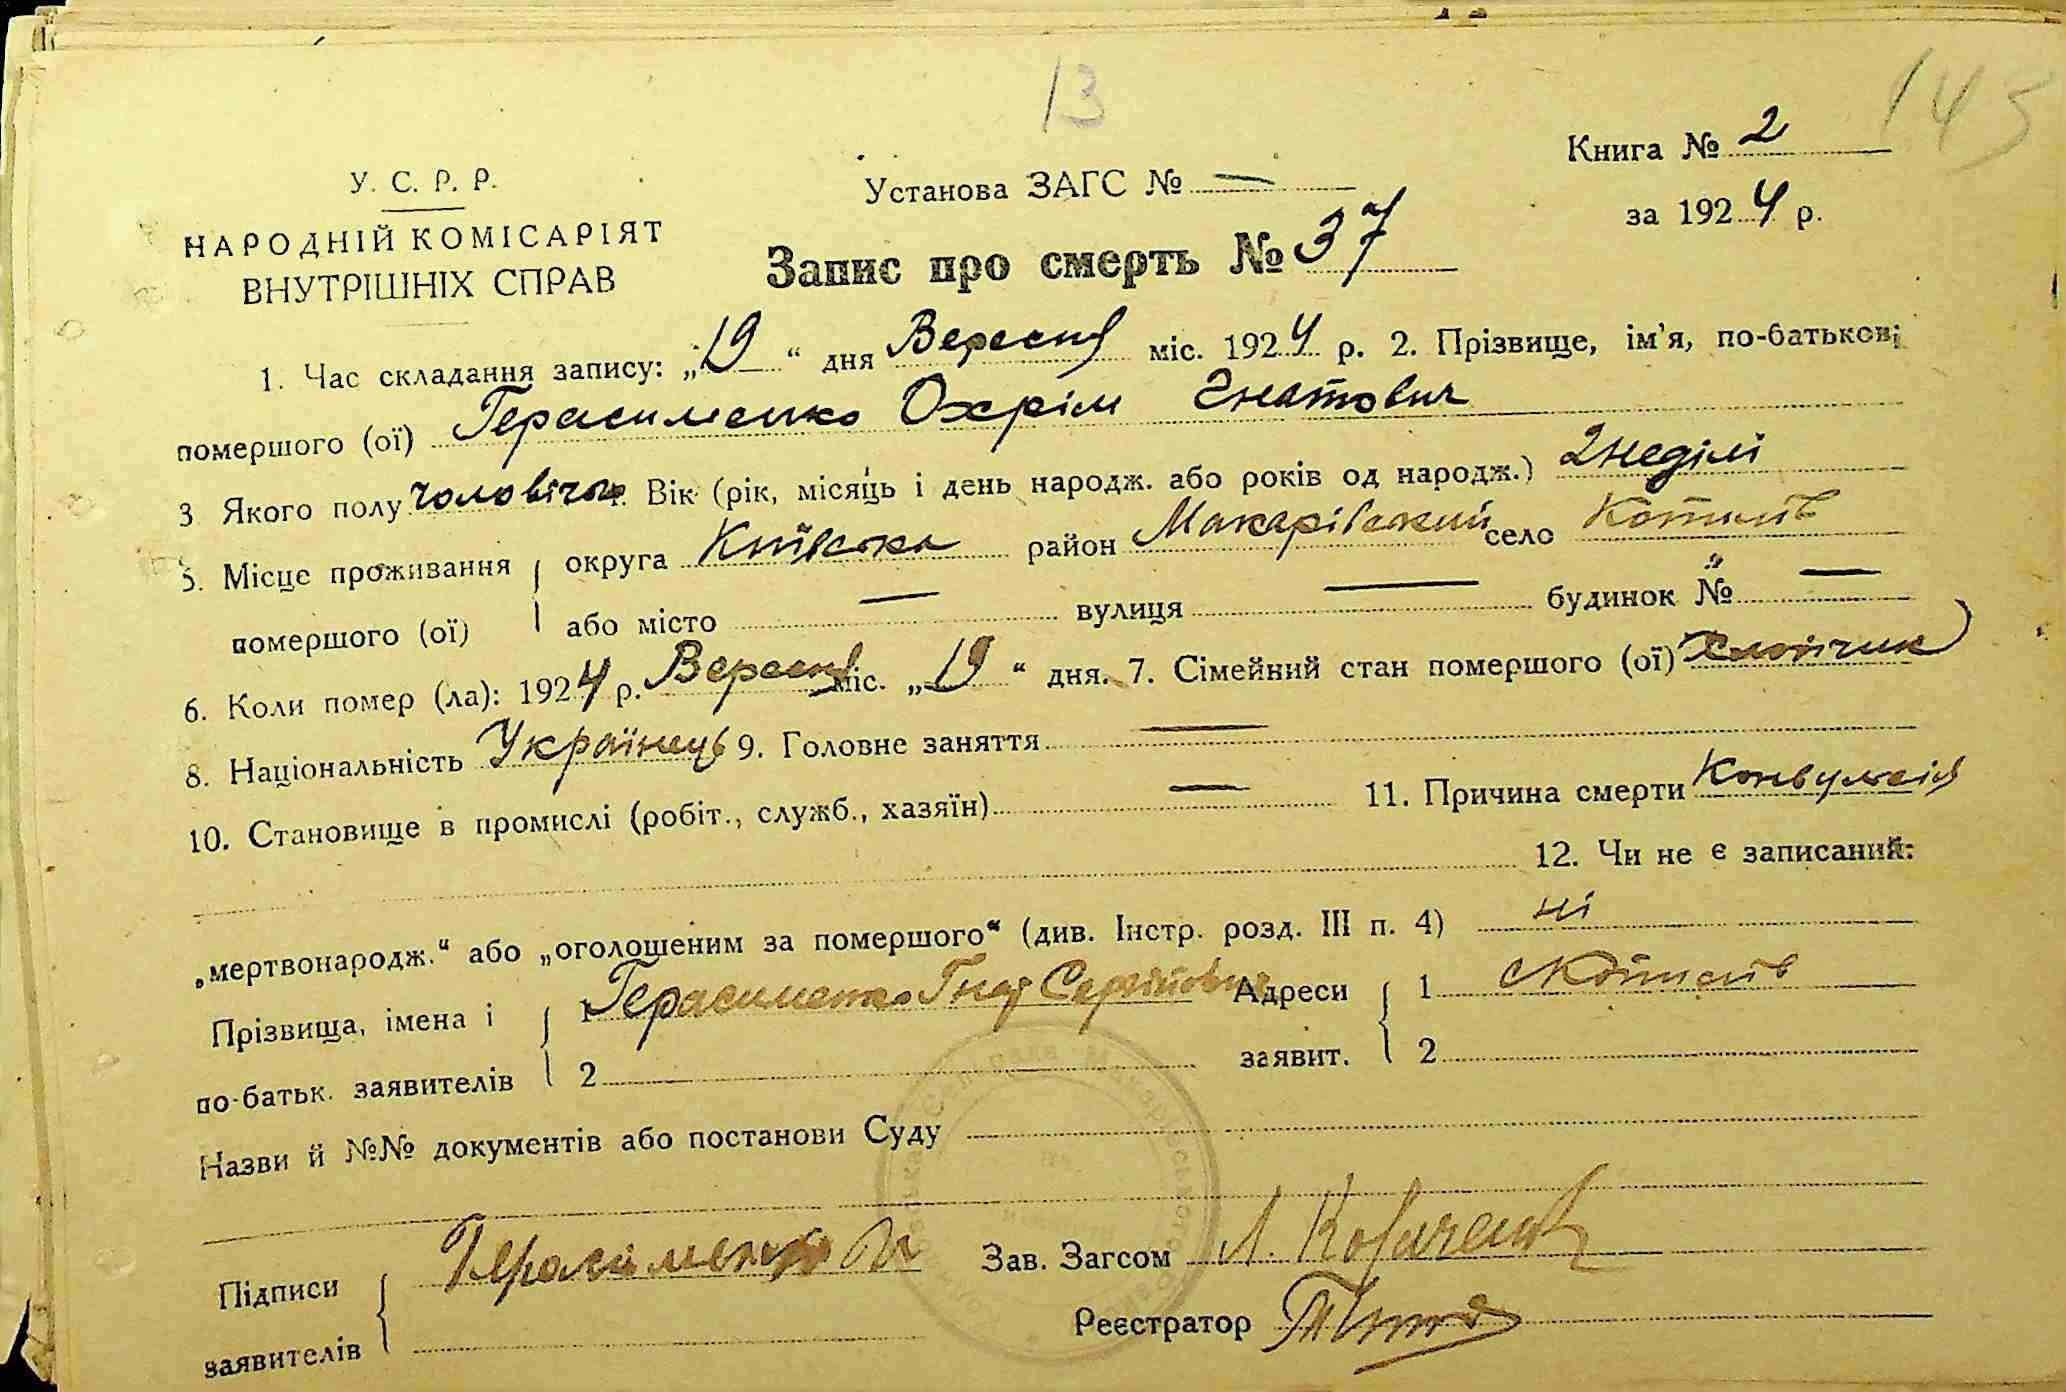 13
145
Книга № 2
У. С. Р. Р.
Установа ЗАГС № —
за 1924 р.
НАРОДНІЙ КОМІСАРІЯТ
ВНУТРІШНІХ СПРАВ
Запис про смерть № 37
1. Час складання запису: „19“ дня Вересня міс. 1924 р. 2. Прізвище, ім'я, по-батькові
помершого (ої) Герасименко Охрім Гнатович
3 Якого полу чоловічої. Вік (рік, місяць і день народж. або років од народж.) 2 неділі
5. Місце проживання округа Київська район Макарівський село
помершого (ої) або місто — вулиця — будинок № —
6. Коли помер (ла): 1924 р. Вересня міс. „19“ дня. 7. Сімейний стан помершого (ої) хлопчик
8. Національність Українець 9. Головне заняття —
10. Становище в промислі (робіт., служб., хазяїн) — 11. Причина смерти Конвульсія
12. Чи не є записаний:
„мертвонародж.“ або „оголошеним за помершого“ (див. Інстр. розд. III п. 4) ні
Прізвища, імена і по-батьк. заявителів 1 Герасименко Гнат Сергійович Адреси заявит. 1
2 2
Назви й №№ документів або постанови Суду
Підписи заявителів Герасименко Зав. Загсом Л.
Реєстратор